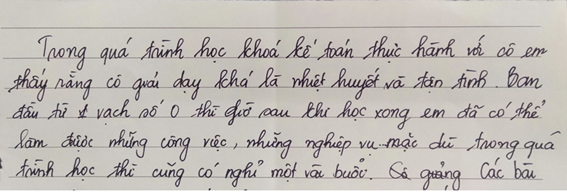 Trong quá trình học khoá kế toán thực hành với cô em
thấy rằng cô giáo dạy khá là nhiệt huyết và tận tình. Ban
đầu từ vạch số 0 thì giờ sau khi học xong em đã có thể
làm được những công việc, những nghiệp vụ mặc dù trong quá
trình học thì cũng có nghỉ một vài buổi. Cô giảng các bài